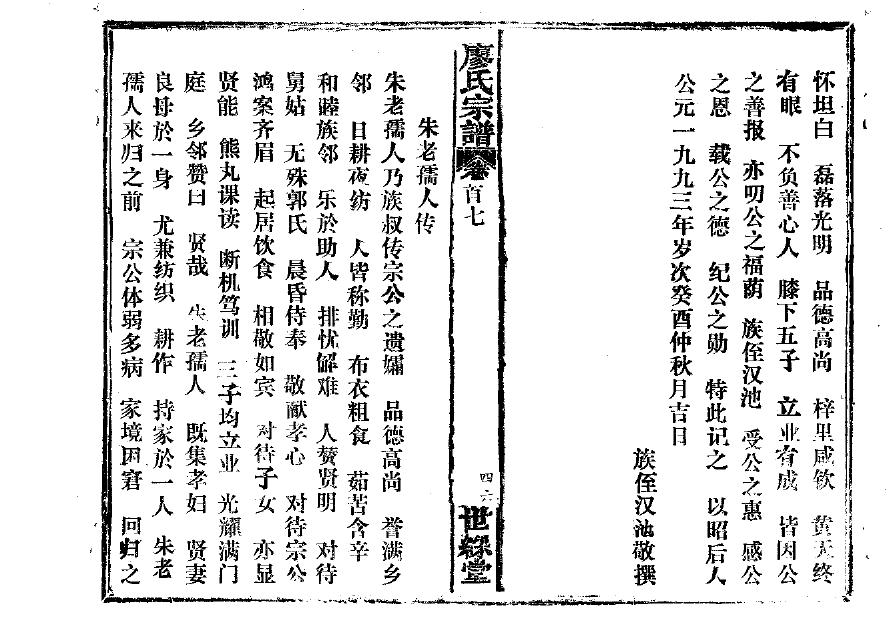 怀坦白 磊落光明 品德高尚 梓里咸钦 黄天终
有眼 不负善心人 膝下五子 立业有成 皆因公
之善报 亦叨公之福荫 族侄汉池 受公之惠 感公
之恩 载公之德 纪公之勋 特此记之 以昭后人
公元一九九三年岁次癸酉仲秋月吉日
族侄汉池敬撰
廖氏宗譜 卷首七 四六 世綵堂
朱老孺人传
朱老孺人乃族叔传宗公之遗孀 品德高尚 誉满乡
邻 日耕夜纺 人皆称勤 布衣粗食 茹苦含辛
和睦族邻 乐於助人 排忧解难 人赞贤明 对待
舅姑 无殊郭氏 晨昏侍奉 敬献孝心 对待宗公
鸿案齐眉 起居饮食 相敬如宾 对待子女 亦显
贤能 熊丸课读 断机笃训 三子均立业 光耀满门
庭 乡邻赞曰 贤哉 朱老孺人 既集孝妇 贤妻
良母於一身 尤兼纺织 耕作 持家於一人 朱老
孺人来归之前 宗公体弱多病 家境困窘 回归之